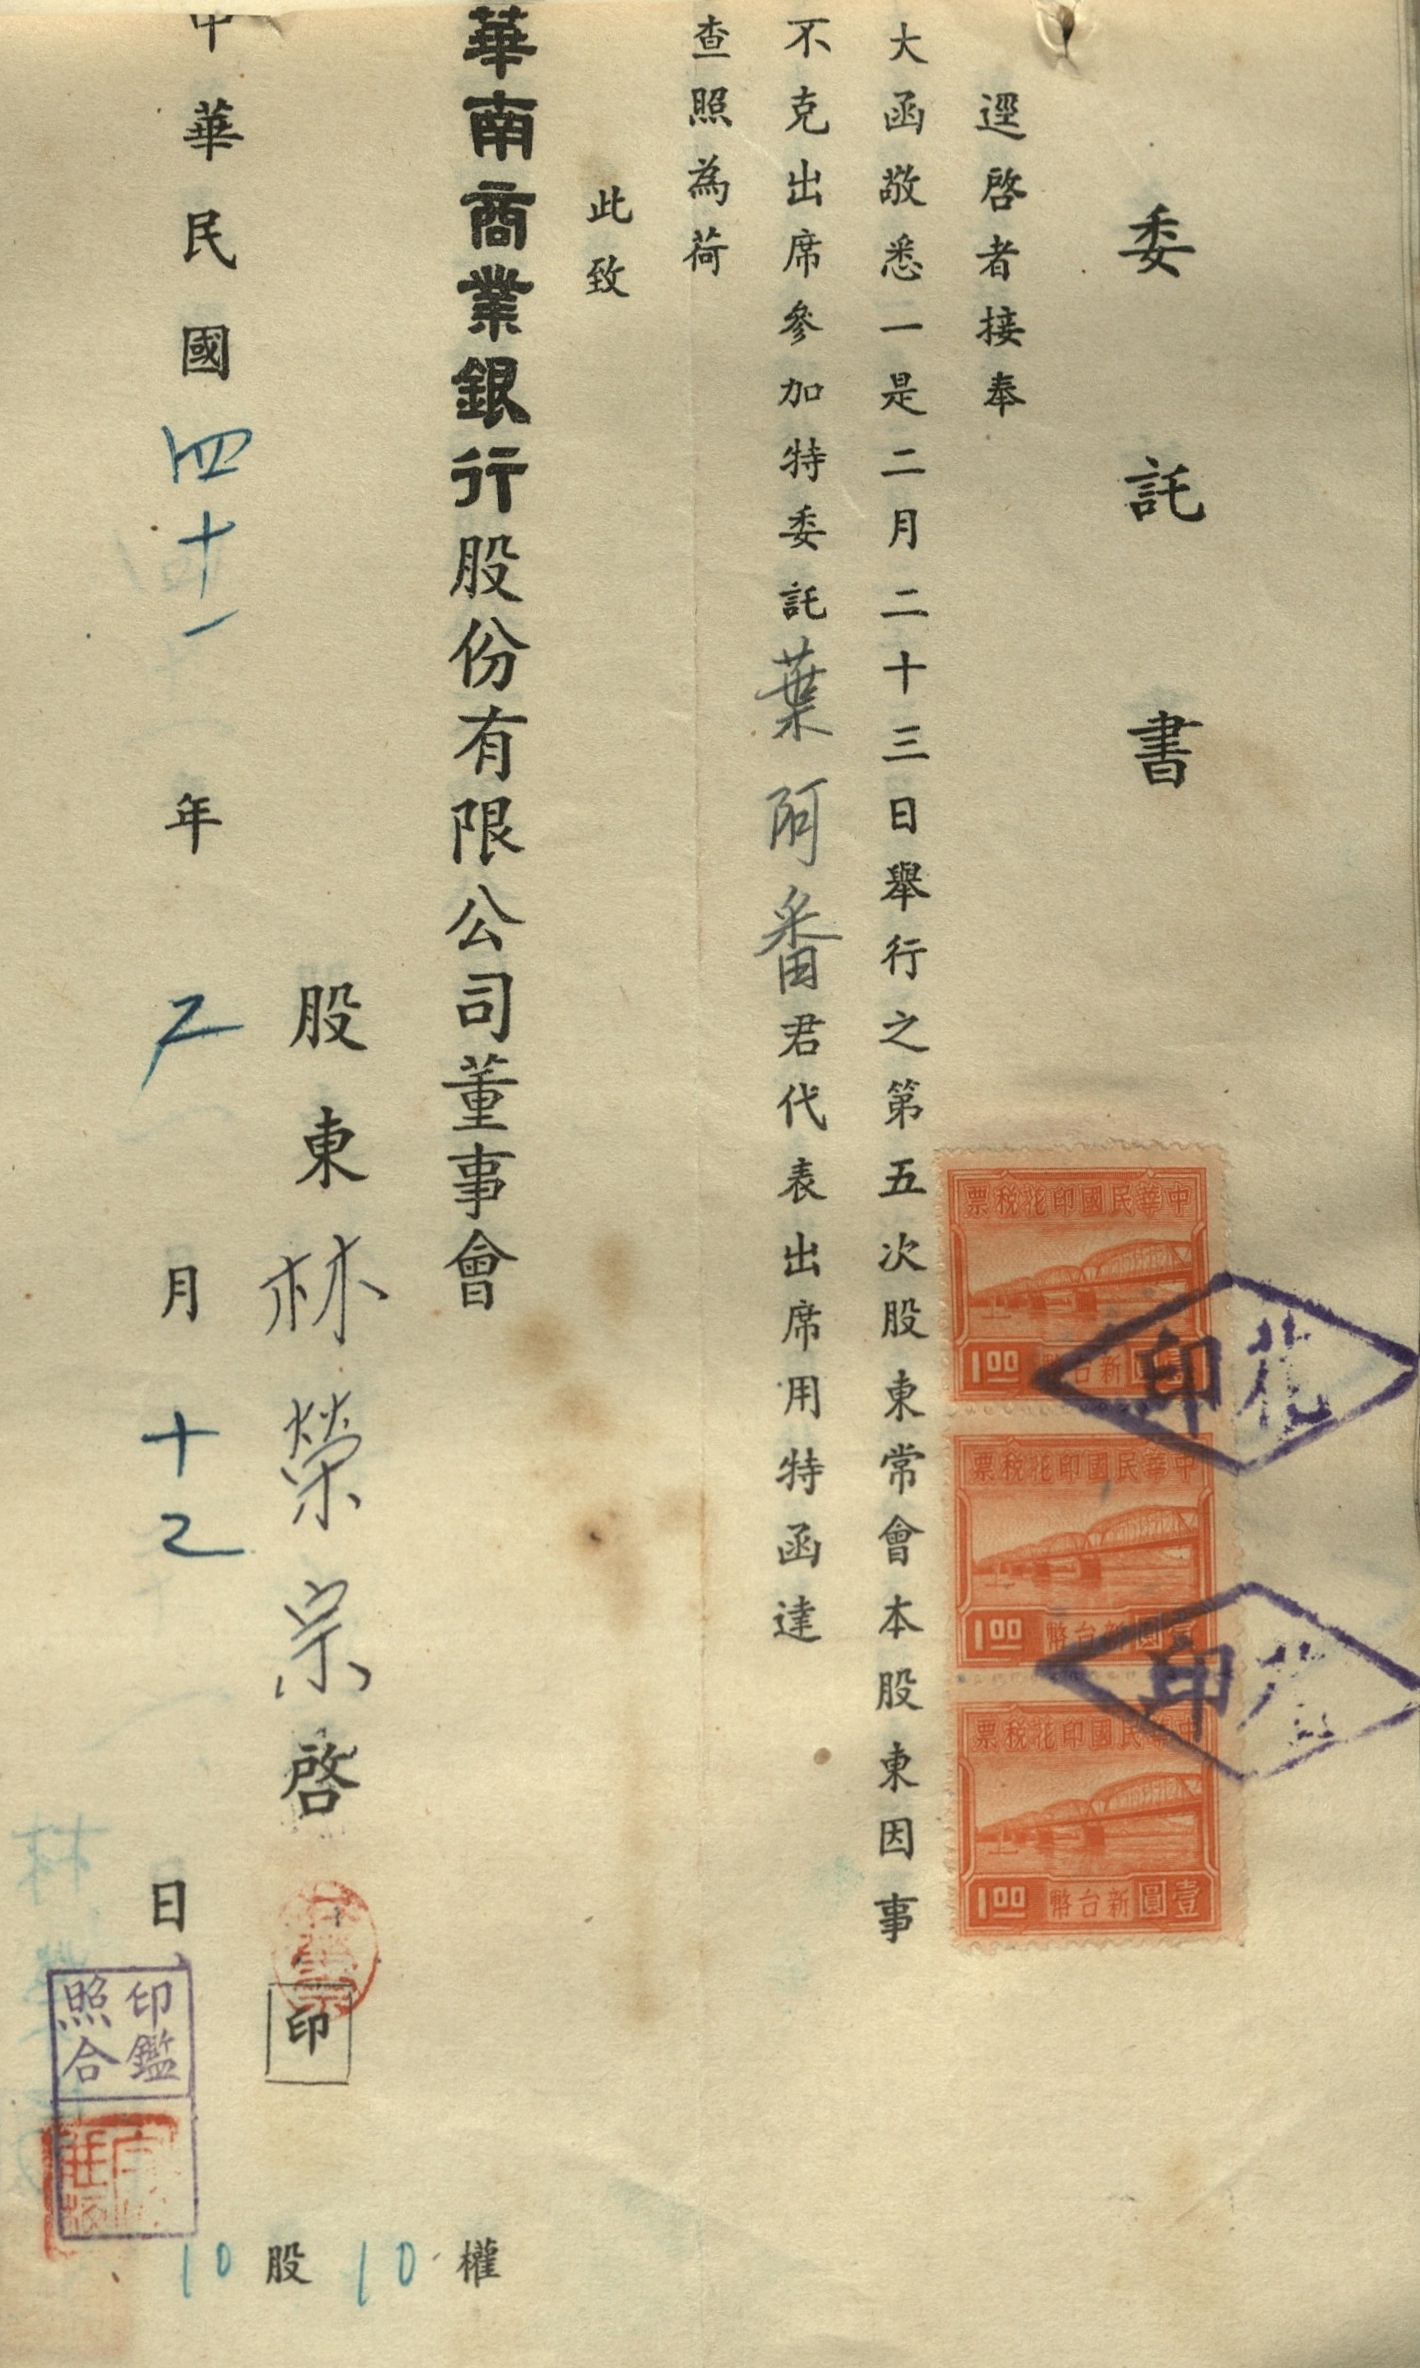 委託書
逕啓者接奉
大函敬悉一是二月二十三日舉行之第五次股東常會本股東因事
不克出席參加特委託葉阿番君代表出席用特函達
查照為荷
此致
華南商業銀行股份有限公司董事會
股東林榮宗啓
印
中華民國四十一年 月十 日
10股10權
印鑑
照合
中華民國印花稅票
1.00 新台幣壹圓
中華民國印花稅票
1.00 新台幣壹圓
中華民國印花稅票
1.00 新台幣壹圓
印花
印花